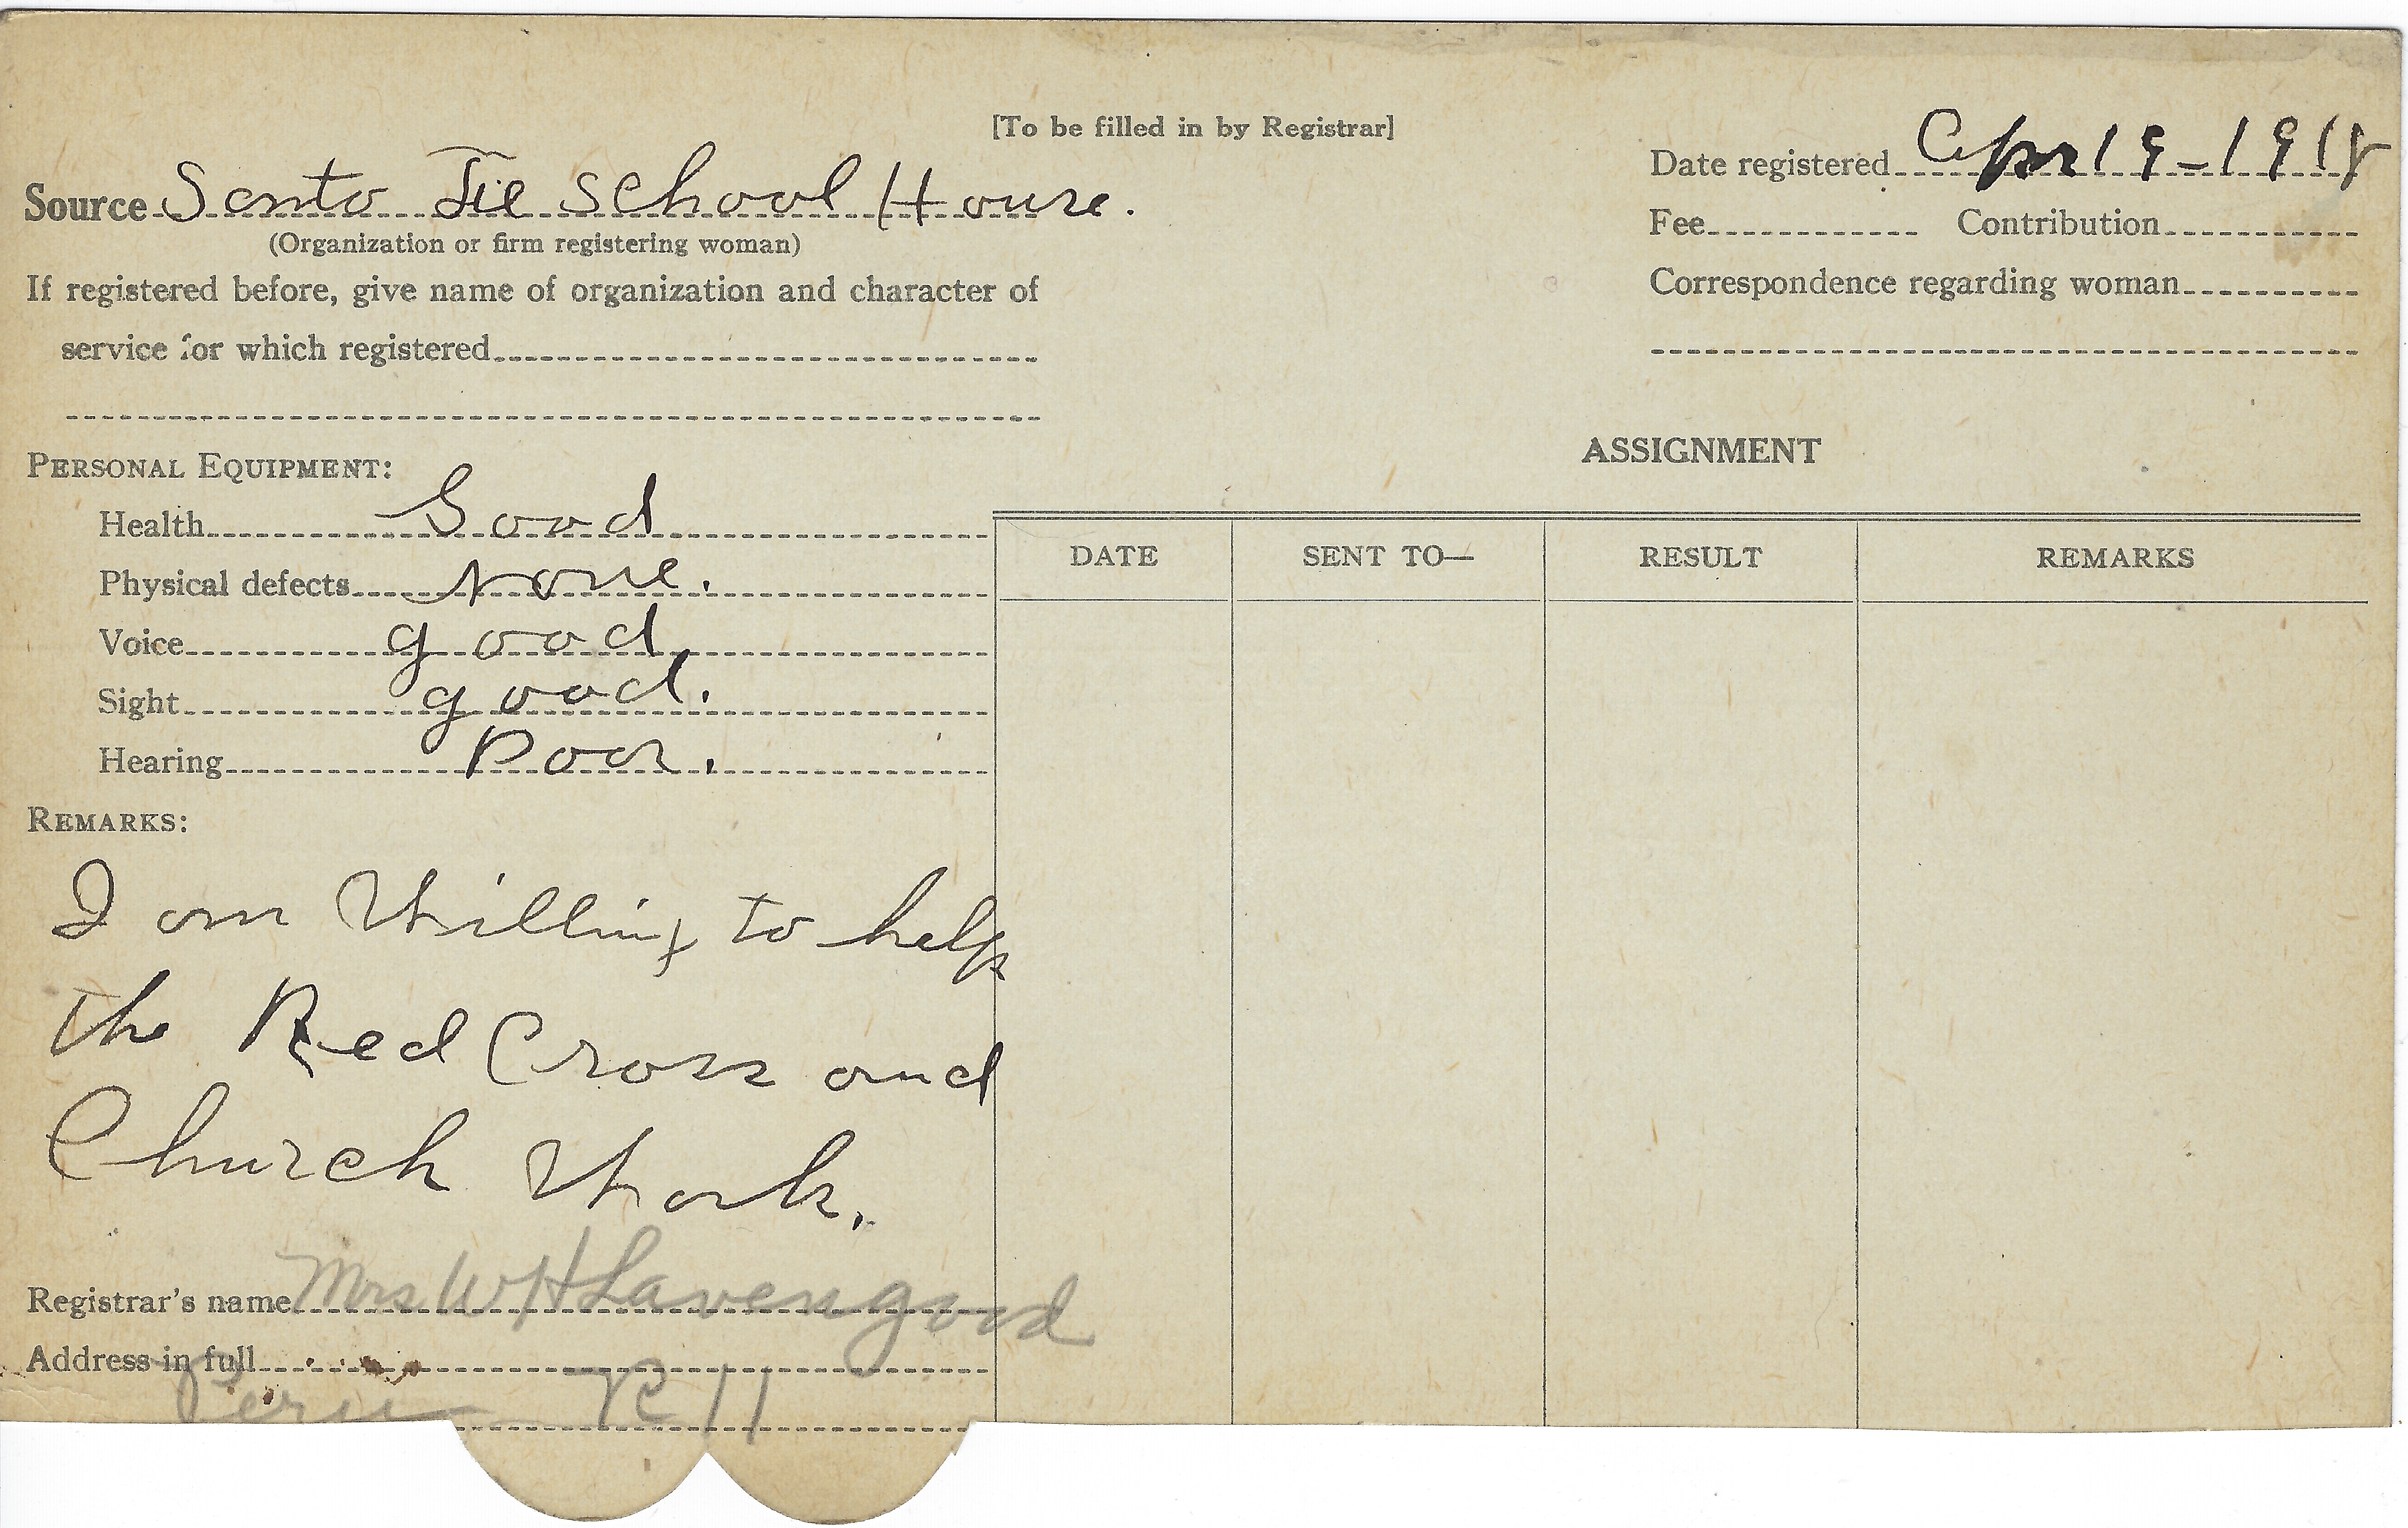 [To be filled in by Registrar]
Source Santo Fie School House.
(Organization or firm registering woman)
Date registered Apr 19-1918
Fee Contribution
Correspondence regarding woman
If registered before, give name of organization and character of
service for which registered
PERSONAL EQUIPMENT:
Health Good
Physical defects None.
Voice good
Sight good.
Hearing Poor.
REMARKS:
I am Willing to help
the Red Cross and
Church Work.
Registrar's name Mrs W H Lavengood
Address in full
Peru R 11
ASSIGNMENT
DATE SENT TO— RESULT REMARKS